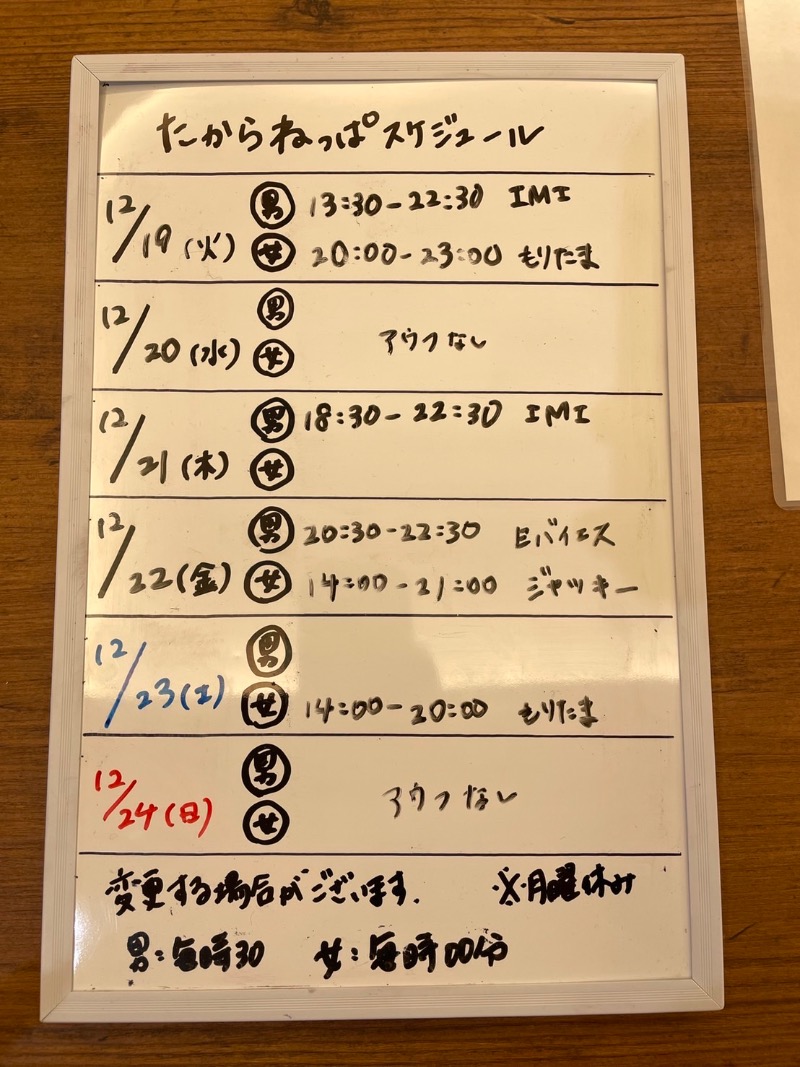 たからねっぱスケジュール
12/19(火) 男 13:30-22:30 IMI
女 20:00-23:00 もりたま
12/20(水) 男
女 アウフなし
12/21(木) 男 18:30-22:30 IMI
女
12/22(金) 男 20:30-22:30 Eバイエス
女 14:00-21:00 ジャッキー
12/23(土) 男
女 14:00-20:00 もりたま
12/24(日) 男
女 アウフなし
変更する場合がございます. ※月曜休み
男:毎時30 女:毎時00分